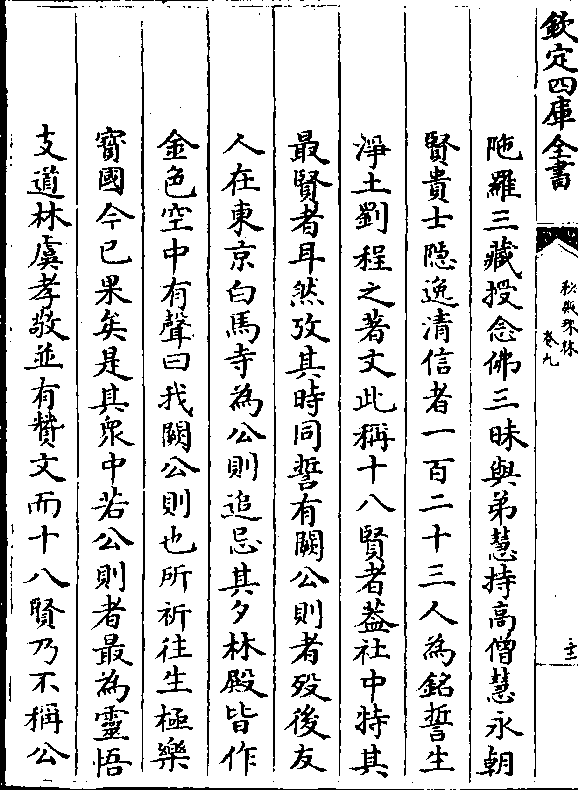 欽定四庫全書
秘殿珠林
卷九
陁羅三藏授念佛三昧與弟慧持高僧慧永朝
賢貴士隐逸清信者一百二十三人為銘誓生
淨土劉程之著文此稱十八賢者葢社中特其
最賢者耳然攷其時同誓有闕公則者殁後友
人在東京白馬寺為公則追忌其夕林殿皆作
金色空中有聲曰我闕公則也所祈往生極樂
寳國今已果矣是其衆中若公則者最為靈悟
支道林虞孝敬並有贊文而十八賢乃不稱公